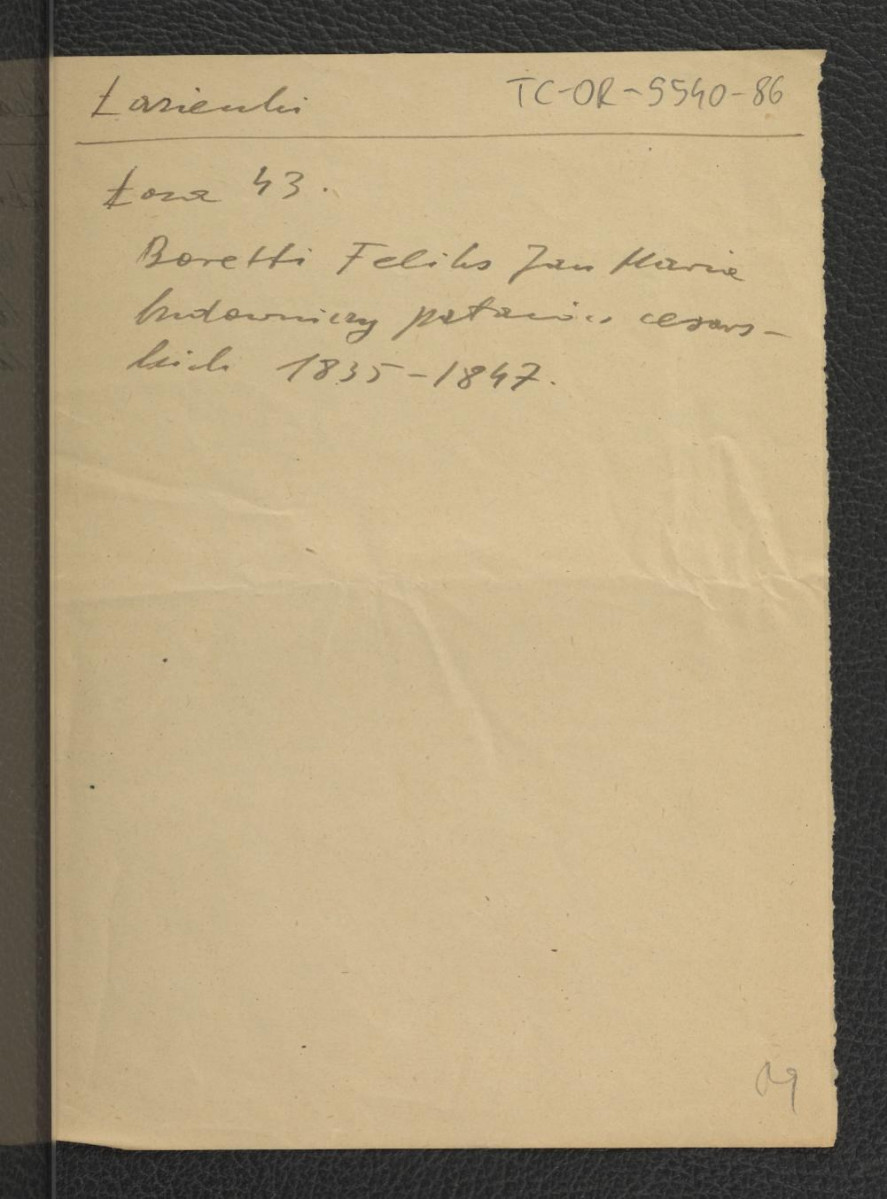 Łazienki
TC-OR-5540-86
Łoza 43.
Boretti Feliks Jan Maria
budowniczy pałaców cesars-
kich 1835-1847.